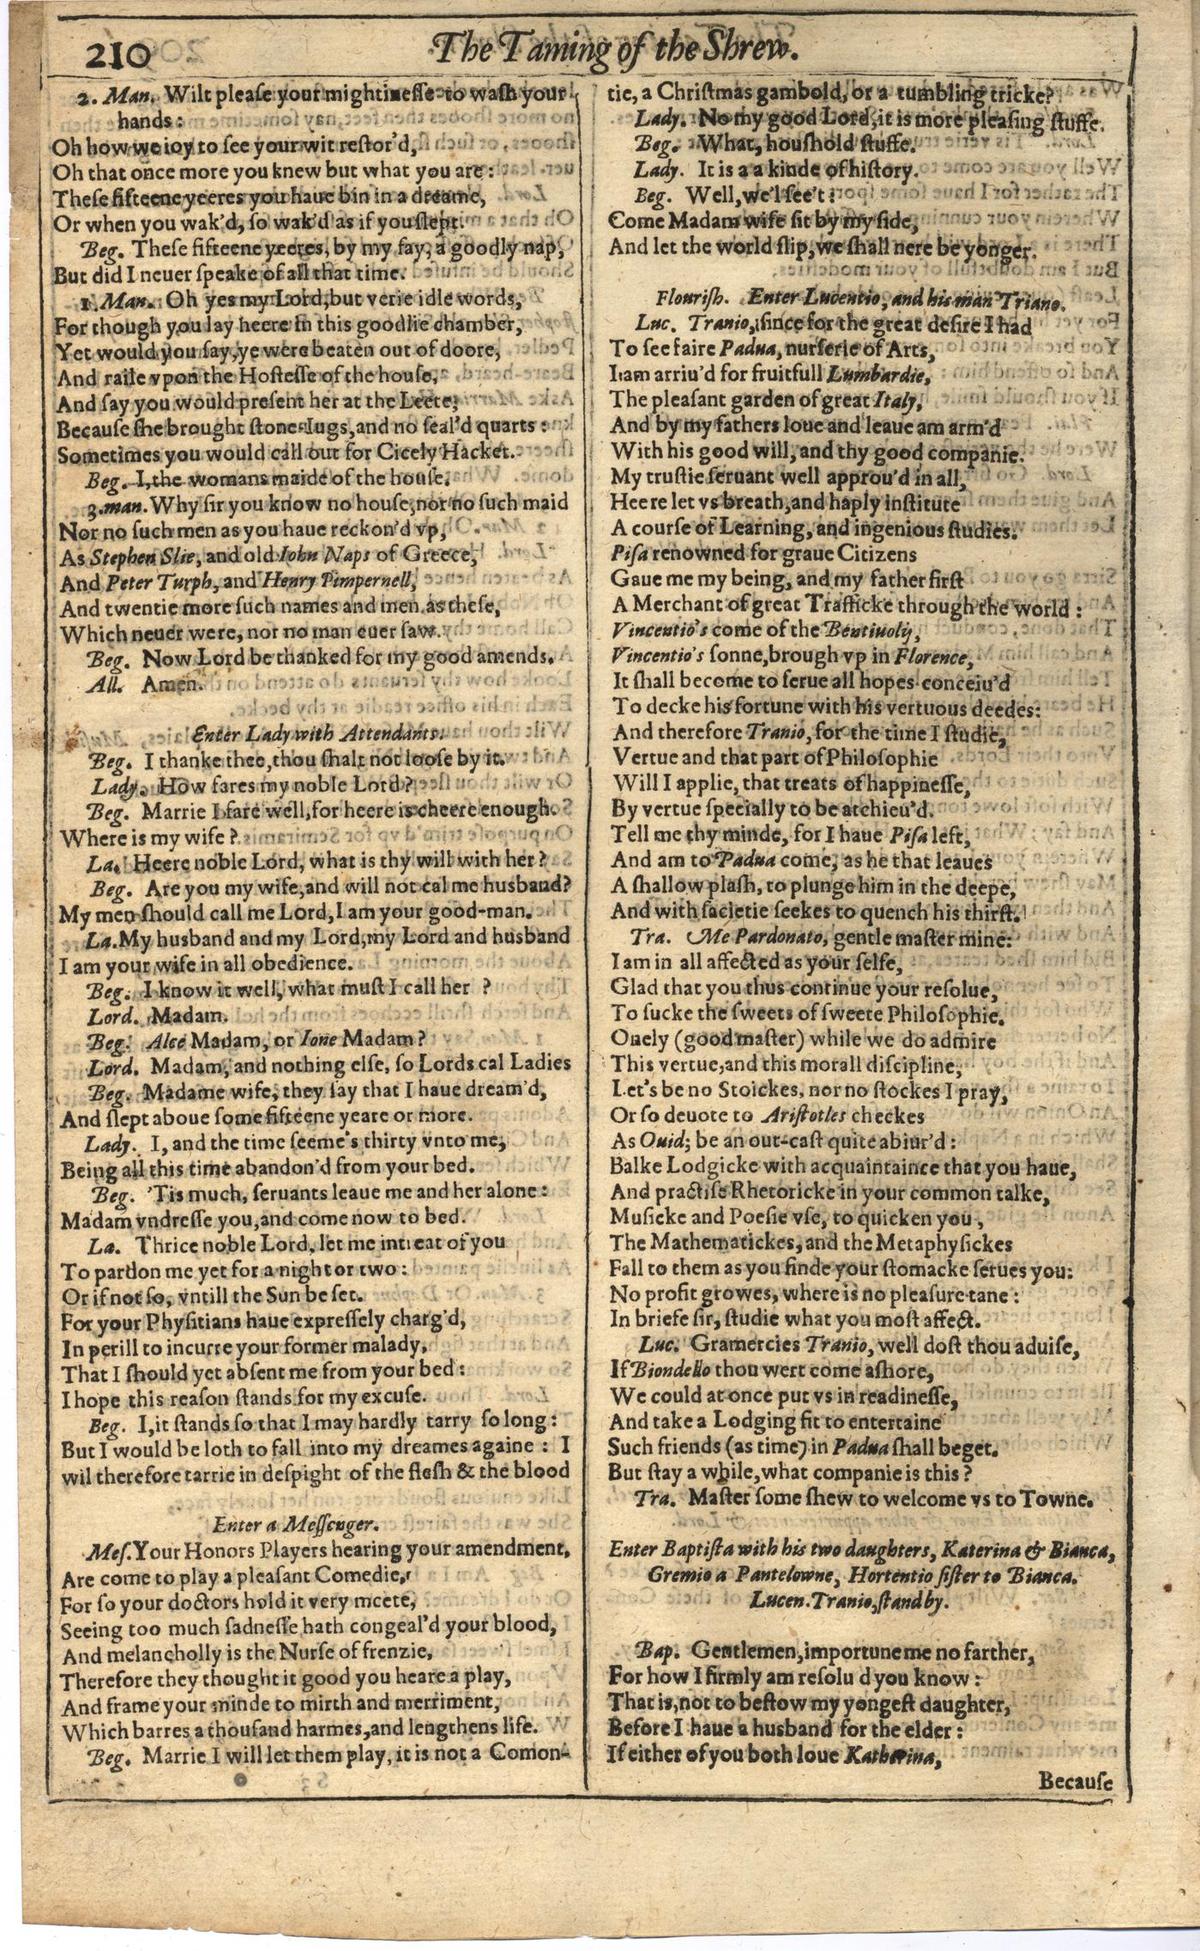 210
The Taming of the Shrew.
2. Man. Wilt please your mightinesse to wash your
hands:
Oh how we ioy to see your wit restor'd,
Oh that once more you knew but what you are:
These fifteene yeeres you haue bin in a dreame,
Or when you wak'd, so wak'd as if you slept.
Beg. These fifteene yeeres, by my fay, a goodly nap,
But did I neuer speake of all that time.
1. Man. Oh yes my Lord, but verie idle words,
For though you lay heere in this goodlie chamber,
Yet would you say, ye were beaten out of doore,
And raile vpon the Hostesse of the house,
And say you would present her at the Leete,
Because she brought stone-Iugs, and no seal'd quarts:
Sometimes you would call out for Cicely Hacket.
Beg. I, the womans maide of the house.
3. man. Why sir you know no house, nor no such maid
Nor no such men as you haue reckon'd vp,
As Stephen Slie, and old Iohn Naps of Greece,
And Peter Turph, and Henry Pimpernell,
And twentie more such names and men as these,
Which neuer were, nor no man euer saw.
Beg. Now Lord be thanked for my good amends.
All. Amen.
Enter Lady with Attendants.
Beg. I thanke thee, thou shalt not loose by it.
Lady. How fares my noble Lord?
Beg. Marrie I fare well, for heere is cheere enough.
Where is my wife?
La. Heere noble Lord, what is thy will with her?
Beg. Are you my wife, and will not cal me husband?
My men should call me Lord, I am your good-man.
La. My husband and my Lord, my Lord and husband
I am your wife in all obedience.
Beg. I know it well, what must I call her ?
Lord. Madam.
Beg. Alce Madam, or Ione Madam?
Lord. Madam, and nothing else, so Lords cal Ladies
Beg. Madame wife, they say that I haue dream'd,
And slept aboue some fifteene yeare or more.
Lady. I, and the time seeme's thirty vnto me,
Being all this time abandon'd from your bed.
Beg. 'Tis much, seruants leaue me and her alone:
Madam vndresse you, and come now to bed.
La. Thrice noble Lord, let me intreat of you
To pardon me yet for a night or two:
Or if not so, vntill the Sun be set.
For your Physitians haue expressely charg'd,
In perill to incurre your former malady,
That I should yet absent me from your bed:
I hope this reason stands for my excuse.
Beg. I, it stands so that I may hardly tarry so long:
But I would be loth to fall into my dreames againe: I
wil therefore tarrie in despight of the flesh & the blood
Enter a Messenger.
Mes. Your Honors Players hearing your amendment,
Are come to play a pleasant Comedie,
For so your doctors hold it very meete,
Seeing too much sadnesse hath congeal'd your blood,
And melancholly is the Nurse of frenzie,
Therefore they thought it good you heare a play,
And frame your minde to mirth and merriment,
Which barres a thousand harmes, and lengthens life.
Beg. Marrie I will let them play, it is not a Comon-
tie, a Christmas gambold, or a tumbling tricke?
Lady. No my good Lord, it is more pleasing stuffe.
Beg. What, houshold stuffe.
Lady. It is a a kinde of history.
Beg. Well, we'l see't:
Come Madam wife sit by my side,
And let the world slip, we shall nere be yonger.
Flourish. Enter Lucentio, and his man Triano.
Luc. Tranio, since for the great desire I had
To see faire Padua, nurserie of Arts,
I am arriu'd for fruitfull Lumbardie,
The pleasant garden of great Italy,
And by my fathers loue and leaue am arm'd
With his good will, and thy good companie.
My trustie seruant well approu'd in all,
Heere let vs breath, and haply institute
A course of Learning, and ingenious studies.
Pisa renowned for graue Citizens
Gaue me my being, and my father first
A Merchant of great Trafficke through the world:
Vincentio's come of the Bentiuolij,
Vincentio's sonne, brough vp in Florence,
It shall become to serue all hopes conceiu'd
To decke his fortune with his vertuous deedes:
And therefore Tranio, for the time I studie,
Vertue and that part of Philosophie
Will I applie, that treats of happinesse,
By vertue specially to be atchieu'd.
Tell me thy minde, for I haue Pisa left,
And am to Padua come, as he that leaues
A shallow plash, to plunge him in the deepe,
And with sacietie seekes to quench his thirst.
Tra. Me Pardonato, gentle master mine:
I am in all affected as your selfe,
Glad that you thus continue your resolue,
To sucke the sweets of sweete Philosophie.
Onely (good master) while we do admire
This vertue, and this morall discipline,
Let's be no Stoickes, nor no stockes I pray,
Or so deuote to Aristotles checkes
As Ouid; be an out-cast quite abiur'd:
Balke Lodgicke with acquaintaince that you haue,
And practise Rhetoricke in your common talke,
Musicke and Poesie vse, to quicken you,
The Mathematickes, and the Metaphysickes
Fall to them as you finde your stomacke serues you:
No profit growes, where is no pleasure tane:
In briefe sir, studie what you most affect.
Luc. Gramercies Tranio, well dost thou aduise,
If Biondello thou wert come ashore,
We could at once put vs in readinesse,
And take a Lodging fit to entertaine
Such friends (as time) in Padua shall beget.
But stay a while, what companie is this?
Tra. Master some shew to welcome vs to Towne.
Enter Baptista with his two daughters, Katerina & Bianca,
Gremio a Pantelowne, Hortentio sister to Bianca.
Lucen. Tranio, stand by.
Bap. Gentlemen, importune me no farther,
For how I firmly am resolu d you know:
That is, not to bestow my yongest daughter,
Before I haue a husband for the elder:
If either of you both loue Katherina,
Because